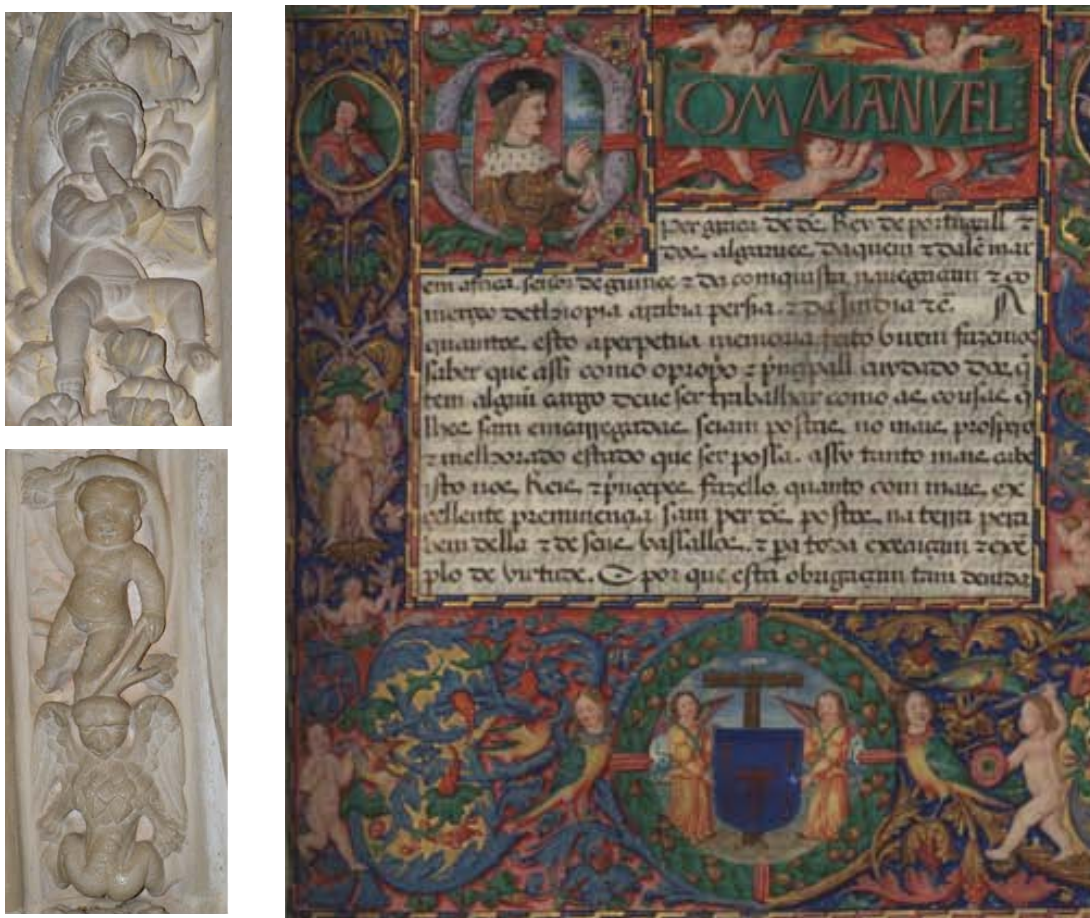 OM MANVEL
per graça de dẽ. Rey de portugall ⁊
dos algarues daquem ⁊ dalẽ mar
em africa. senor de guinee ⁊ da comquista nauegaçam ⁊ co
mercio dethiopia arabia persia. ⁊ da Jndia ⁊c̃. A
quantos esto aperpetua memoria feito virem fazemos
saber que assi como opropo ⁊ prinçipall cuydado dos q̃
tem alguũ cargo deue ser trabalhar como as cousas q̃
lhes sam emcarregadas seiam postas no mais prospero
⁊ melhorado estado que ser possa. assy tanto mais cabe
isto nos Reis ⁊ prinçepes fazello quanto com mais ex
cellente preminença sam per dẽ postos na terra pera
bem della ⁊ de seus vassallos. ⁊ pa toda exeuçam ⁊ exẽ
plo de virtude. E por que esta obrigaçam tam deuida